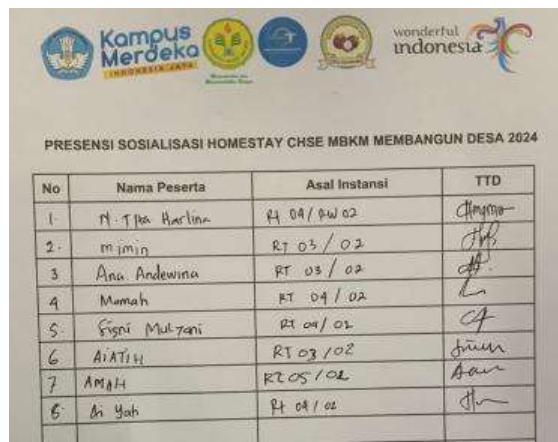 Kampus
Merdeka
INDONESIA JAYA
wonderful
indonesia
PRESENSI SOSIALISASI HOMESTAY CHSE MBKM MEMBANGUN DESA 2024
No Nama Peserta Asal Instansi TTD
1. Harlina Rt 04/RW 02
2. mimin RT 03 / 02
3 Ana Andewina RT 03 / 02
4 Mamah RT 04 / 02
5. Mulyani RT 04 / 02
6 AiATIH RT 03 / 02
7 AMAH RT 05 / 02
8. Ai Yah Rt 04 / 02